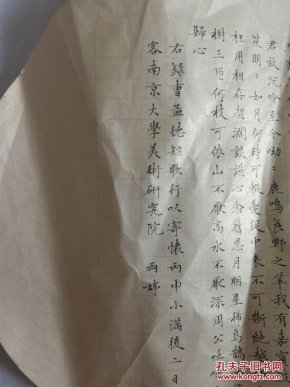 君故沉吟至今呦：鹿鳴食野之苹我有嘉賓
笙明：如月何時可掇憂從中來不可斷絕越
枉用相存契濶談讌心念舊恩月明星稀烏鵲
樹三匝何枝可依山不厭高水不厭深周公吐哺
歸心
右錄曹孟德短歌行以寄懷丙申小滿後二日
客南京大學美術研究院 雨婷